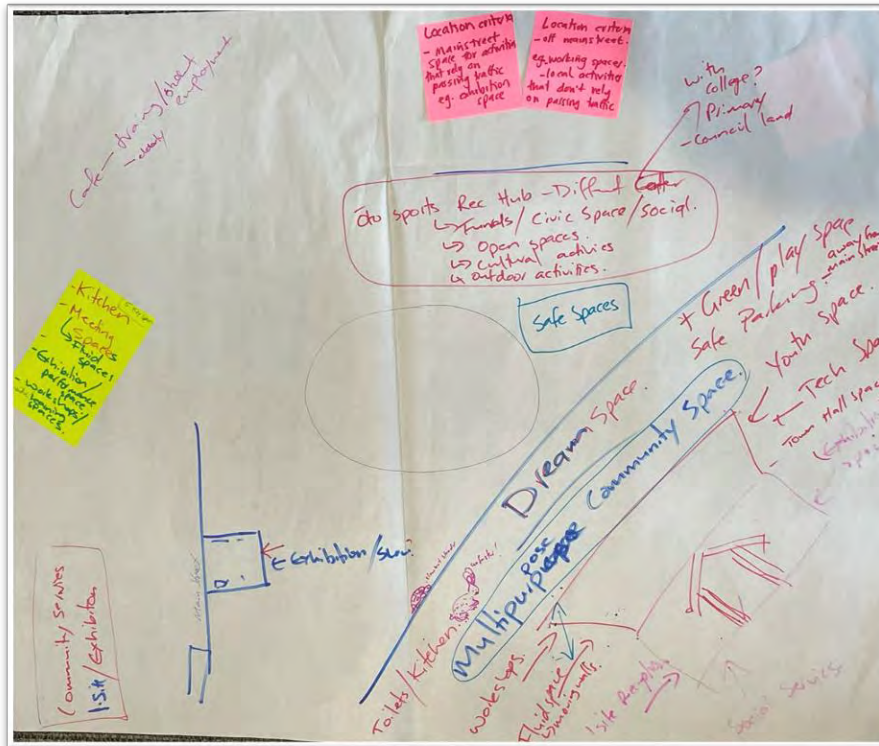 Location criteria
- Mainstreet
space for activities
that rely on
passing traffic
eg. exhibition
space
Location criteria
- off mainstreet.
eg. working spaces.
- local activities
that don't rely
on passing traffic
with
college?
Primary
- Council land
Cafe - training/student
employment
sports Rec Hub - Diffrent
Civic Space/Social.
↳ Open spaces.
↳ Cultural activies
↳ outdoor activities.
Safe Spaces
- Kitchen
- Meeting
Spaces
↳ Fluid
spaces
- Exhibition/
performance
space
- workshops/
spaces.
+ Green/play space
Safe Parking. away from
mainstreet
Youth space.
+ Tech Spa
- Town Hall space
Exhibition
Dream Space.
Multipurpose Community Space.
pose
← Exhibition/
Main Street
Community Services
I.Site/Exhibition
Toilets/Kitchen.
Workshops.
Fluid space
↳ moving walls.
I site
Social Services